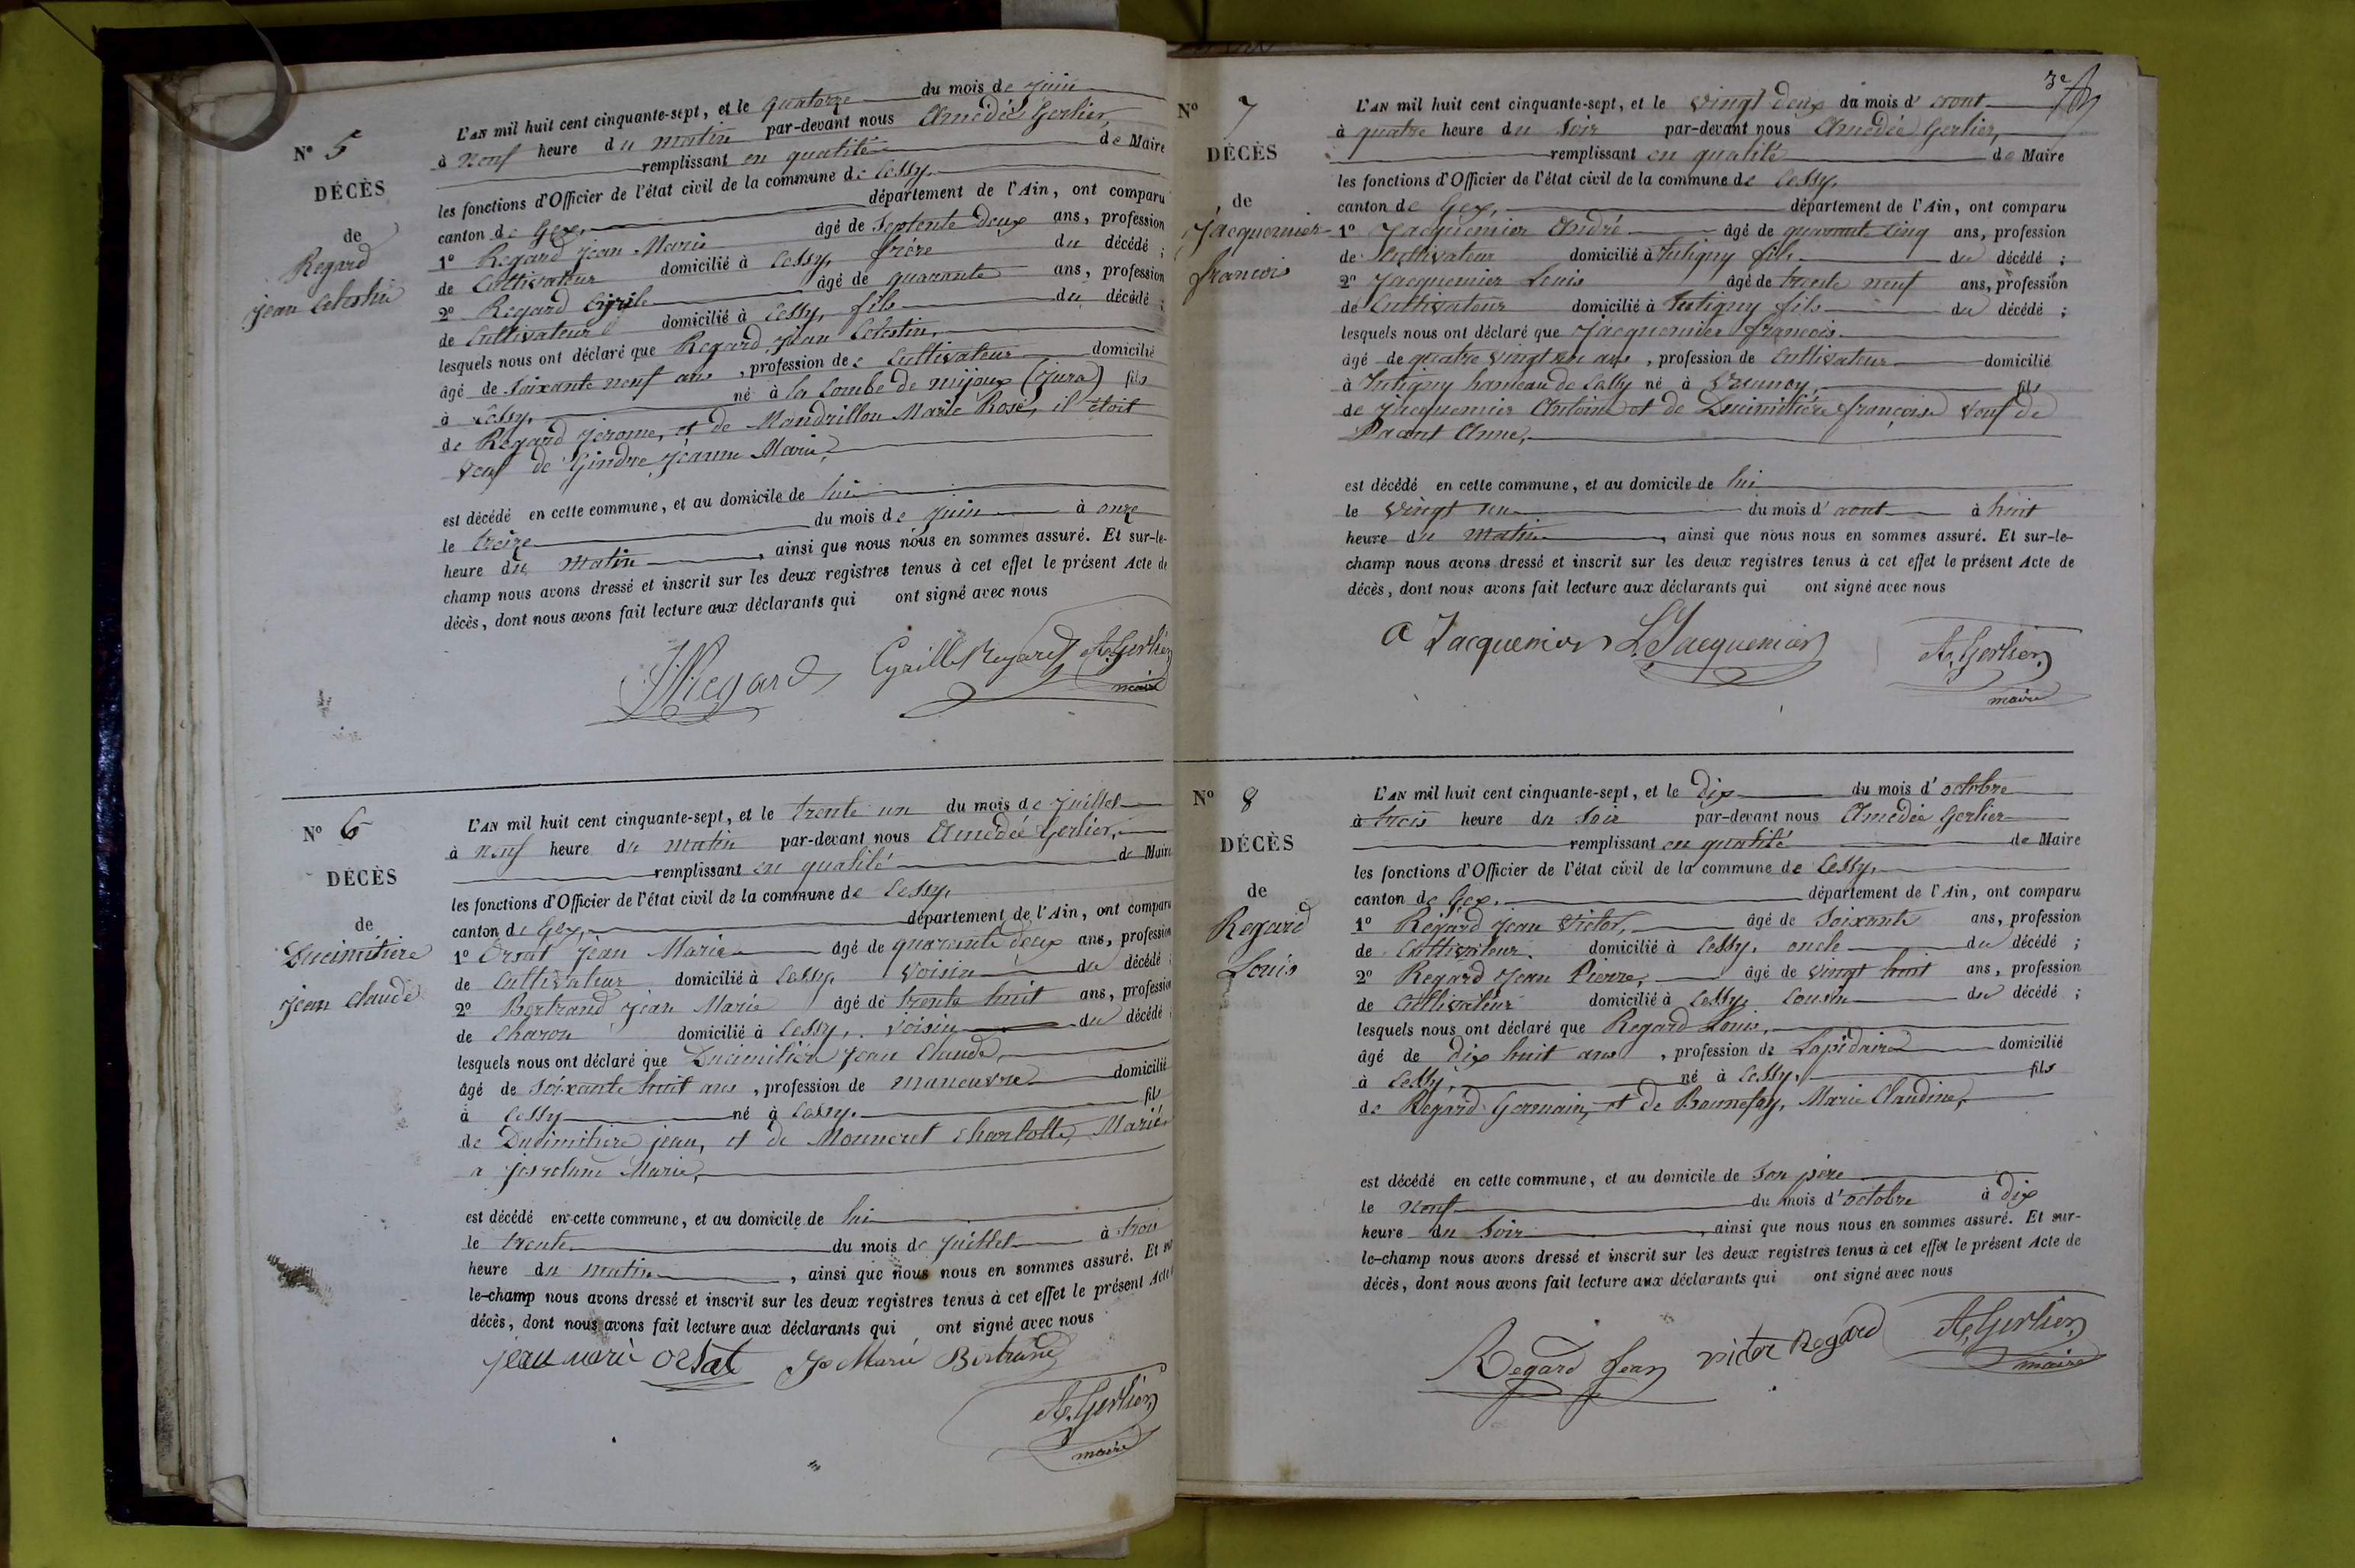 N° 5
DÉCÈS
de
Regard
jean Celestin
L'AN mil huit cent cinquante-sept, et le quatorze du mois de juin
à neuf heure du matin par-devant nous Amédée Gerlier,
remplissant en qualité de Maire
les fonctions d'Officier de l'état civil de la commune de Cessy,
canton de Gex, département de l'Ain, ont comparu
1° Regard jean Marie âgé de Septente deux ans, profession
de Cultivateur domicilié à Cessy, frère du décédé ;
2° Regard Cyrile âgé de quarante ans, profession
de Cultivateur domicilié à Cessy, fils du décédé ;
lesquels nous ont déclaré que Regard jean Celestin,
âgé de soixante neuf ans, profession de Cultivateur domicilié
à Cessy, né à la Combe de mijoux (jura) fils
de Regard jerome, et de Mandrillon Marie Rose, il étoit
veuf de Gindre jeanne Marie,
est décédé en cette commune, et au domicile de lui
le treize du mois de juin à onze
heure du matin, ainsi que nous nous en sommes assuré. Et sur-le-
champ nous avons dressé et inscrit sur les deux registres tenus à cet effet le présent Acte de
décès, dont nous avons fait lecture aux déclarants qui ont signé avec nous
Regard Cyrille Regard A. Gerlier
maire
N° 6
DÉCÈS
de
Ducimitiere
jean Claude
L'AN mil huit cent cinquante-sept, et le trente un du mois de juillet
à neuf heure du matin par-devant nous Amédée Gerlier,
remplissant en qualité de Maire
les fonctions d'Officier de l'état civil de la commune de Cessy,
canton de Gex, département de l'Ain, ont comparu
1° Orsat jean Marie âgé de quarante deux ans, profession
de Cultivateur domicilié à Cessy, voisin du décédé ;
2° Bertrand jean Marie âgé de trente huit ans, profession
de Charon domicilié à Cessy, voisin du décédé ;
lesquels nous ont déclaré que Ducimitière jean Claude,
âgé de soixante huit ans, profession de manœuvre domicilié
à Cessy né à Cessy, fils
de Ducimitiere jean, et de Mouneret Charlotte, Marié
a Marie,
est décédé en cette commune, et au domicile de lui
le trente du mois de juillet à trois
heure du matin, ainsi que nous nous en sommes assuré. Et sur-
le-champ nous avons dressé et inscrit sur les deux registres tenus à cet effet le présent Acte de
décès, dont nous avons fait lecture aux déclarants qui ont signé avec nous
jean marie orsat Marie Bertrand
A. Gerlier
maire
3e
N° 7
DÉCÈS
de
Jacquemier
francois
L'AN mil huit cent cinquante-sept, et le vingt deux du mois d'aout
à quatre heure du soir par-devant nous Amédée Gerlier,
remplissant en qualité de Maire
les fonctions d'Officier de l'état civil de la commune de Cessy,
canton de Gex, département de l'Ain, ont comparu
1° Jacquemier André âgé de quarante cinq ans, profession
de Cultivateur domicilié à Tutigny fils du décédé ;
2° Jacquemier Louis âgé de trente neuf ans, profession
de Cultivateur domicilié à Tutigny fils du décédé ;
lesquels nous ont déclaré que Jacquemier françois
âgé de quatre vingt un ans, profession de Cultivateur domicilié
à Tutigny hameau de Cessy né à fils
de jacquemier Antoine et de Ducimitière françoise veuf de
Pacout Anne,
est décédé en cette commune, et au domicile de lui
le vingt un du mois d'aout à huit
heure du matin, ainsi que nous nous en sommes assuré. Et sur-le-
champ nous avons dressé et inscrit sur les deux registres tenus à cet effet le présent Acte de
décès, dont nous avons fait lecture aux déclarants qui ont signé avec nous
A Jacquemier L. Jacquemier A. Gerlier
maire
N° 8
DÉCÈS
de
Regard
Louis
L'AN mil huit cent cinquante-sept, et le dix du mois d'octobre
à trois heure du soir par-devant nous Amédée Gerlier
remplissant en qualité de Maire
les fonctions d'Officier de l'état civil de la commune de Cessy,
canton de Gex, département de l'Ain, ont comparu
1° Regard jean Victor, âgé de soixante ans, profession
de Cultivateur. domicilié à Cessy, oncle du décédé ;
2° Regard jean Pierre, âgé de vingt huit ans, profession
de Cultivateur domicilié à Cessy, Cousin du décédé ;
lesquels nous ont déclaré que Regard Louis,
âgé de dix huit ans, profession de Lapidaire domicilié
à Cessy, né à Cessy, fils
de Regard Germain, et de Bonnefoy, Marie Claudine,
est décédé en cette commune, et au domicile de son père
le neuf du mois d'octobre à dix
heure du soir, ainsi que nous nous en sommes assuré. Et sur-
le-champ nous avons dressé et inscrit sur les deux registres tenus à cet effet le présent Acte de
décès, dont nous avons fait lecture aux déclarants qui ont signé avec nous
Regard Jean victor Regard A. Gerlier
maire